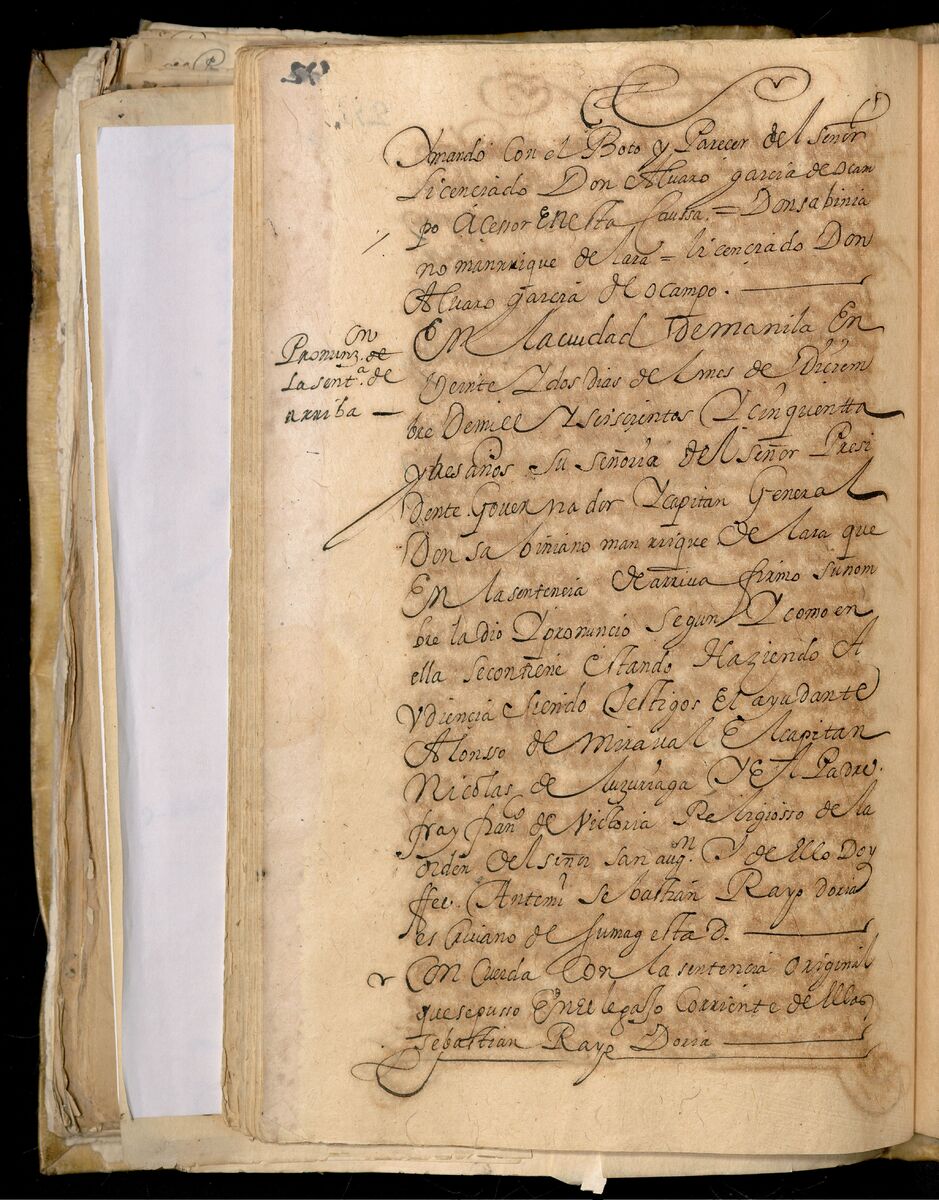 Ymando con el Boto y Parecer del señor
Licenciado Don Alvaro garcia de ocam
po Acessor En esta Caussa. = Don sabinia
no manrrique de lara = licenciado Don
Alvaro garcia de ocampo.
Pronunz.on de
La sent.a de
arriba
En la ciudad De manila En
Veinte Y dos dias del mes de Diciem
bre De mill Y seiscientos Y cinquentta
y tres años su señoria del señor Presi
dente Governador Y capitan General
Don sabiniano manrrique de lara que
En la sentencia de arriva firmo su nom
bre la dio Y pronuncio segun Y como en
ella se contiene estando Haziendo A
Vdiencia siendo testigos El ayudante
Alonsso de Miraval El capitan
Nicolas de luzuriaga Y El Padre
fray fran.co de Victoria Religiosso de la
orden del señor san aug.n Y de Ello Doy
ffee. Antemi sebastian Rayo doria
escrivano de su magestad.
Concuerda Con la sentencia original
que se pusso En El legaJo Corriente de Ellas
Sebastian Rayo Doria